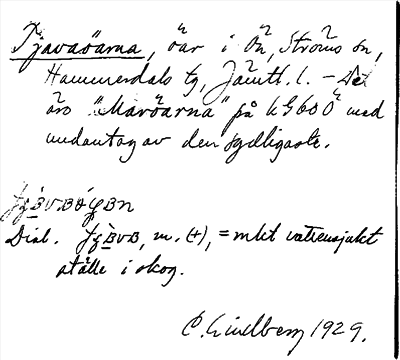 Tjavaöarna, öar i Ön, Ströms sn,
Hammerdals tg, Jämtl. l. – Det
äro "Maröarna" på kG60Ö med
undantag av den sydligaste.
Dial. m. (+), = mkt vattensjukt
ställe i skog.
C. Lindberg 1929.